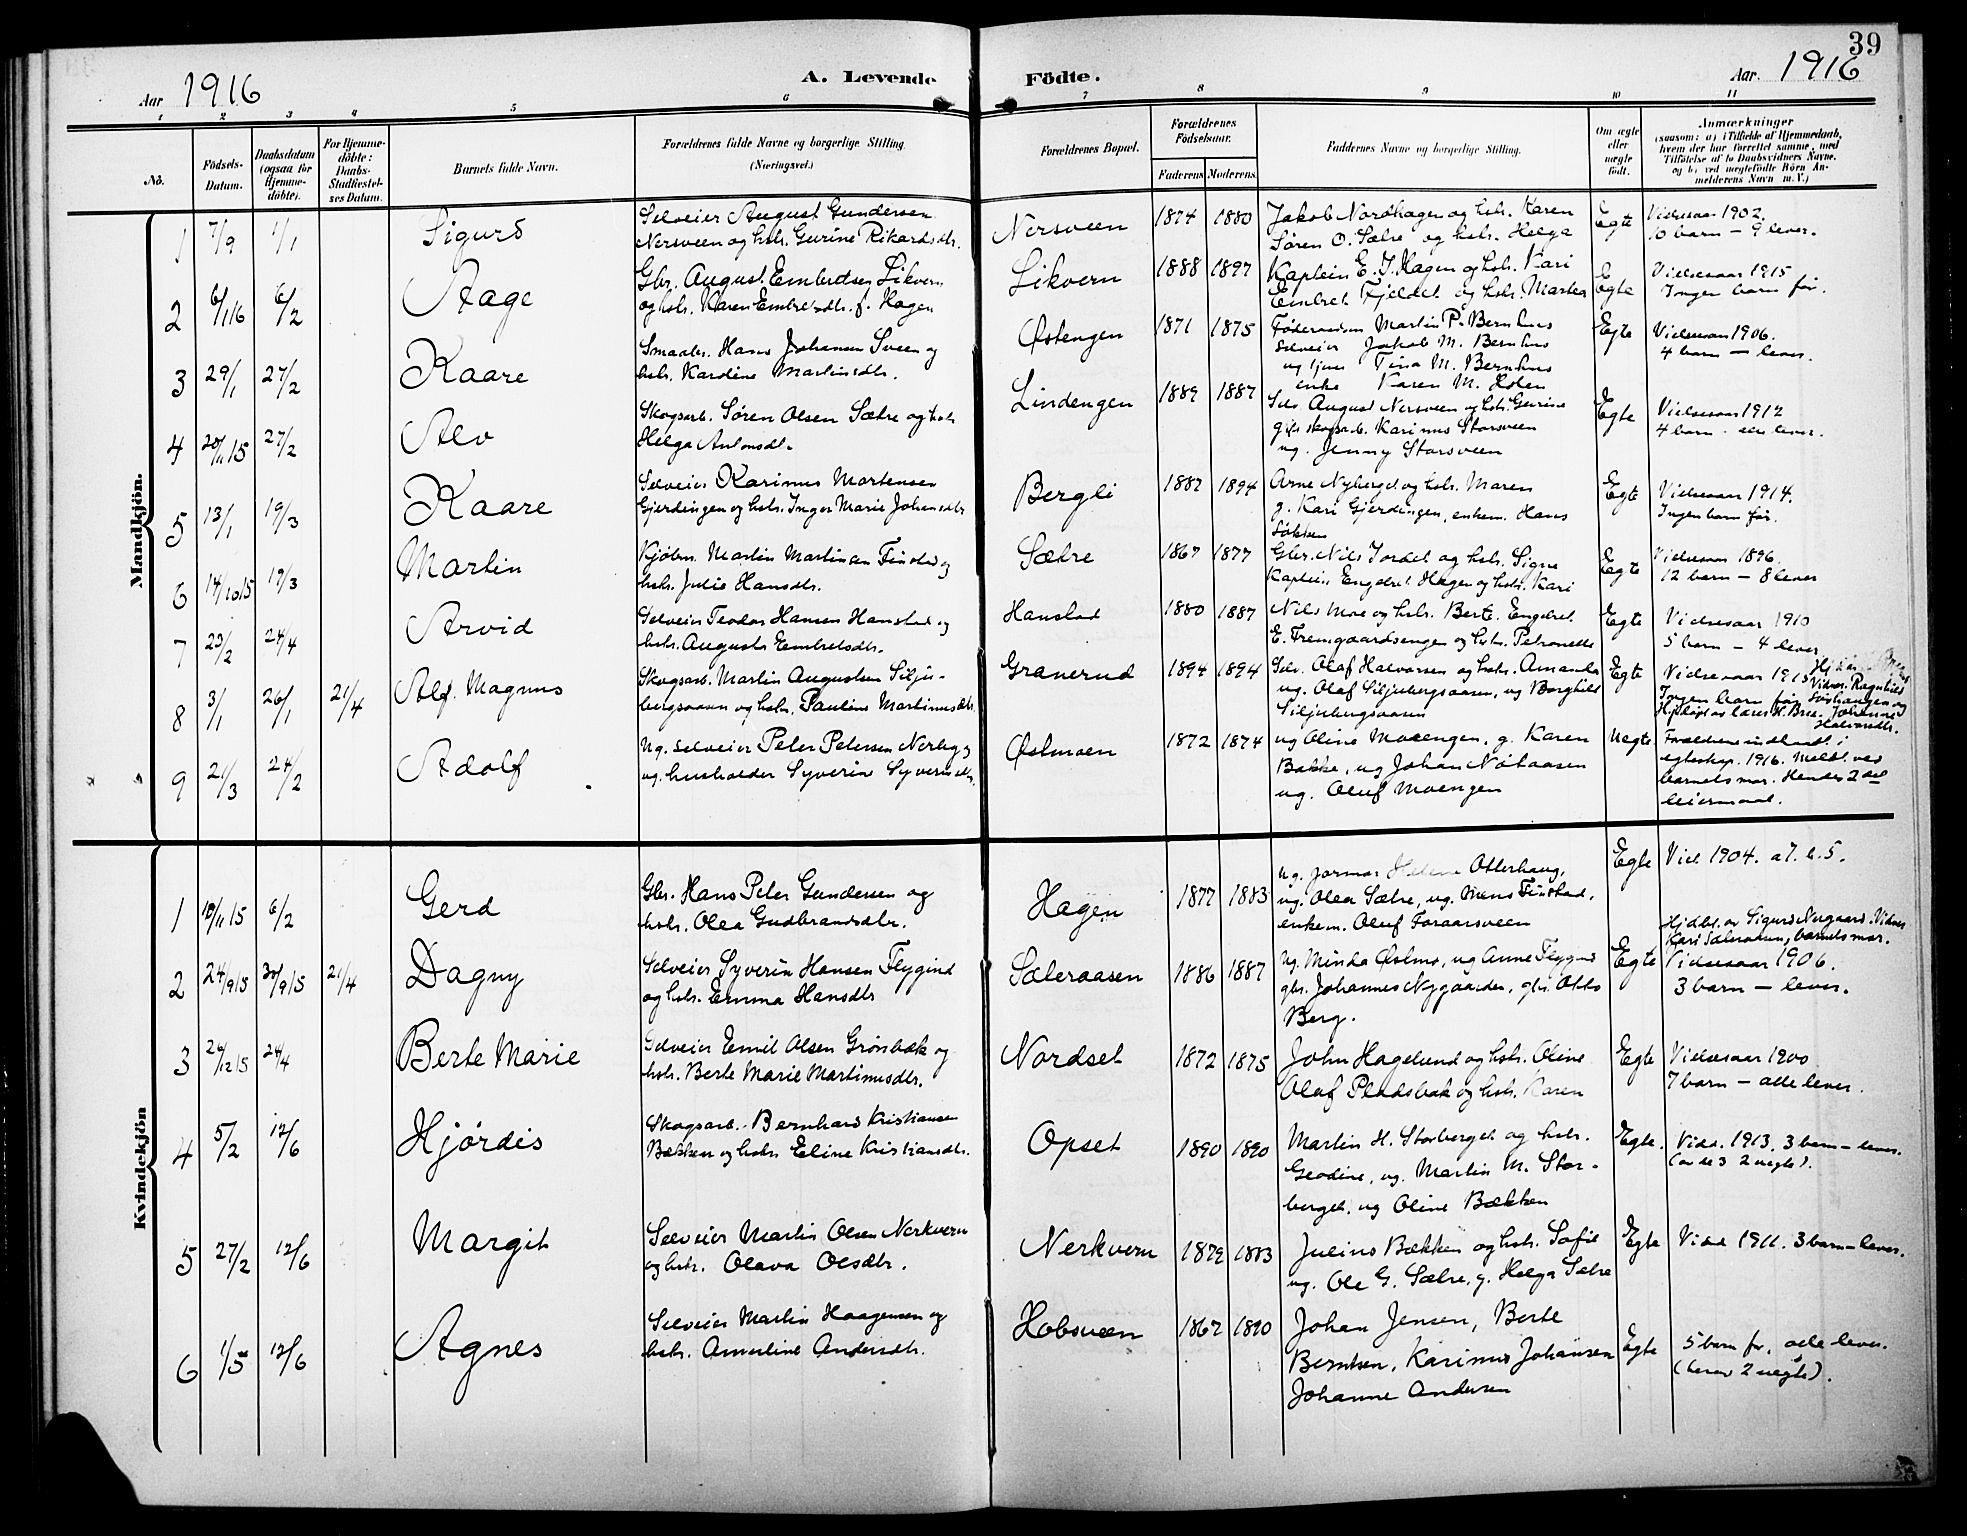 39
Aar 1916
A. Levende Födte.
Aar. 1916
1 2 3 4 5 6 7 8 9 10 11
No.
Födsels-
Datum.
Daabsdatum
(ogsaa for
Hjemme-
döbte).
For Hjemme-
döbte:
Daabs-
Stadfæstel-
ses Datum.
Barnets fulde Navn.
Forældrenes fulde Navne og borgerlige Stilling.
(Næringsvei.)
Forældrenes Bopæl.
Forældrenes
Födselsaar.
Faderens. Moderens.
Faddernes Navne og borgerlige Stilling.
Om ægte
eller
uægte
födt.
Anmærkninger
(saasom: a) i Tilfælde af Hjemmedaab,
hvem der har forrettet samme, med
Tilföielse af to Daabsvidners Navne,
og b) ved uægtefödte Börn An-
melderens Navn m. V.)
Mandkjön.
1 7/9 1/1 Sigurd
Selveier August Gundersen
Nersveen og hstr. Gurine Rikardsdtr.
Nersveen 1874 1880
Jakob Nordhagen og hstr. Karen
Søren O. Sætre og hstr. Helga
Egte
Vielsesaar 1902.
10 barn – 9 lever.
2 6/1 16 6/2 Aage
Gbr. August Embretsen Likvern
og hstr. Karen Embretsdtr. f. Hagen
Likvern 1888 1897
Kaptein E. J. Hagen og hstr. Kari
Embret Fjeldet og hstr. Martea
Egte
Vielsesaar 1915
Ingen barn før.
3 29/1 27/2 Kaare
Smaabr. Hans Johansen Sveen og
hstr. Karoline Martinsdtr.
Østengen 1871 1875
Føderaadsm Martin P. Bernhus
selveier Jakob M. Bernhus
ug tjener Tina M. Bernhus
enke Karen M. Holen
Egte
Vielsesaar 1906.
4 barn – lever.
4 20/11 15 27/2 Alv
Skogsarb. Søren Olsen Sætre og hstr
Helga Antonsdtr.
Lindengen 1889 1887
Selv. August Nersveen og hstr. Gurine
gift skogsarb. Karinus Storsveen
ug. Jenny Storsveen
Egte
Vielsesaar 1912
4 barn – alle lever.
5 13/1 19/3 Kaare
Selveier Karinus Mortensen
Gjerdingen og hstr. Inger Marie Johansdtr
Bergli 1882 1894
Arne Nyberget og hstr. Maren
g. Kari Gjerdingen, enkem. Hans
Løkken
Egte
Vielsesaar 1914.
Ingen barn før.
6 14/10 15 19/3 Martin
Kjøbm. Martin Martinsen Finstad og
hstr. Julie Hansdtr.
Sætre 1867 1877
Gbr. Nils Jordet og hstr. Signe
Kaptein Engebret Hagen og hstr. Kari
Egte
Vielsesaar 1896.
12 barn – 8 lever
7 23/2 24/4 Arvid
Selveier Teodor Hansen Hanstad og
hstr. Augusta Embretsdtr.
Hanstad 1880 1887
Nils Moe og hstr. Berte. Engebret
E. Fremgaardsengen og hstr. Petronelle
Egte
Vielsesaar 1910
5 barn – 4 lever
8 3/1 26/1 21/4 Alf Magnus
Skogsarb. Martin Augustsen Silju-
bergsaasen og hstr. Pauline Martinusdtr.
Granerud 1894 1894
Selv. Olaf Halvorsen og hstr. Amanda
ug. Olaf Siljubergsaasen, ug Borghild
Siljubergsaasen
Egte
Vielsesaar 1915
Ingen barn før
Hjdøpt av lærer H. Bræ. Johanne
Halvorsdtr.
9 21/3 24/2 Adolf
Ug. selveier Peter Petersen Nerbyg
ug. husholder Syverin Syverinsdtr.
Østmoen 1872 1874
ug Oline Moengen, g. Karen
Bakke, ug Johan Nøtaasen
ug. Oluf Moengen
Uegte.
Forældrene indtraadt i
egteskap. 1916. Meldt ved
barnets mor. Hendes 2det
leiermaal.
Kvindekjön
1 10/11 15 6/2 Gerd
Gbr. Hans Peter Gundersen og
hstr. Olea Gudbrandsdtr.
Hagen 1877 1883
ug. jormor Helene Otterhaug,
ug. Olea Sætre, ug. Mons Finstad,
enkem. Oluf Foraarsveen
Egte
Viet 1904. a 7. l. 5.
2 24/9 15 30/9 15 21/4 Dagny
Selveier Syverin Hansen Flygind
og hstr. Emma Hansdtr
Sæteraasen 1886 1887
Ug. Minda Østmo, ug Anne Flygind
gbr. Johannes Nygaarden, gbr. Otto
Berg.
Egte
Hjdbt. av Sigurd Nygaard. Vidner
Kari Sæteraasen, barnets mor.
Vielsesaar 1906.
3 barn – lever.
3 26/12 15 24/4 Berte Marie
Selveier Emil Olsen Grønbæk og
hstr. Berte Marie Martinusdtr.
Nordset 1872 1875
John Hagelund og hstr. Oline
Olaf Pladsbak og hstr. Karen
Egte
Vielsesaar 1900
7 barn – alle lever.
4 5/2 12/6 Hjørdis
Skogsarb. Bernhard Kristiansen
Bækken og hstr Eline Kristiansdtr.
Opset 1890 1890
Martin H. Storberget og hstr.
Geodine, ug. Martin M. Stor-
berget, ug Oline Bækken
Egte.
Viet. 1913. 3 barn – lever.
(av de 3 2 uegte).
5 27/2 12/6 Margit
Selveier Martin Olsen Nerkvern
og hstr. Olava Olsdtr.
Nerkvern 1879 1883
Julius Bækken og hstr. Sofie
ug. Ole G. Sætre, g. Helga Sætre
Egte
Viet 1911. 3 barn – lever.
6 1/5 12/6 Agnes
Selveier Martin Haagensen og
hstr. Amerline Andersdtr.
Hobsveen 1867 1890
Johan Jensen, Berte
Berntsen, Karinus Johansen
Johanne Andersen
Egte
5 barn før, alle lever.
(herav 2 uegte).